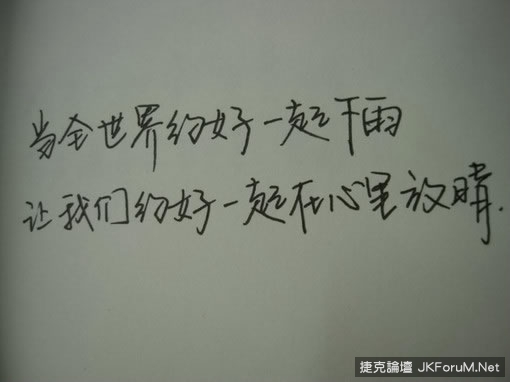 当全世界约好一起下雨
让我们约好一起在心里放晴.
捷克論壇 JKForuM.Net